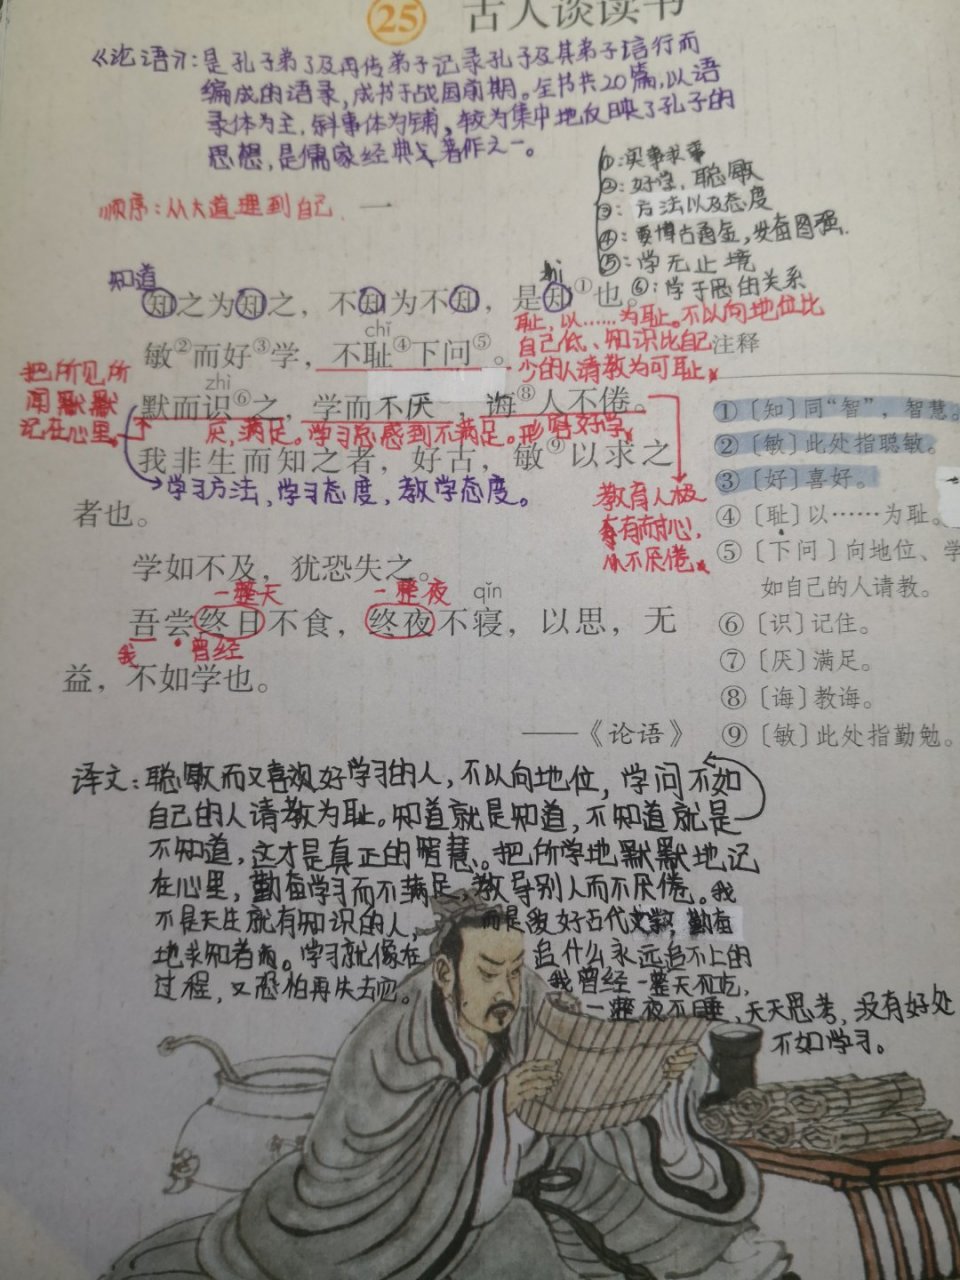 25 古人谈读书
《论语》:是孔子弟子及再传弟子记录孔子及其弟子言行而
编成的语录,成书于战国前期。全书共20篇,以语
录体为主,叙事体为辅,较为集中地反映了孔子的
思想,是儒家经典著作之一。
①:实事求事
②:好学,聪敏
③:方法以及态度
④:要博古通今,发奋图强.
⑤:学无止境
⑥:学于思的关系
顺序:从大道理到自己. 一
知道
知之为知之，不知为不知，是知①也。
耻,以……为耻。不以向地位比
自己低、知识比自己
少的人请教为可耻
chǐ
敏②而好③学，不耻④下问⑤。
注释
把所见所
闻默默
记在心里
zhì
默而识⑥之，学而不厌，诲⑧人不倦。
厌,满足。学习总感到不满足。形容好学
我非生而知之者，好古，敏⑨以求之
学习方法,学习态度,教学态度。
者也。
教育人极
有耐心,
从不厌倦
①〔知〕同“智”，智慧。
②〔敏〕此处指聪敏。
③〔好〕喜好。
④〔耻〕以……为耻。
⑤〔下问〕向地位、学
如自己的人请教。
⑥〔识〕记住。
⑦〔厌〕满足。
⑧〔诲〕教诲。
⑨〔敏〕此处指勤勉。
学如不及，犹恐失之。
一整天 一整夜 qǐn
吾尝终日不食，终夜不寝，以思，无
我 曾经
益，不如学也。
——《论语》
译文:聪敏而又喜欢好学习的人,不以向地位,学问不如
自己的人请教为耻。知道就是知道,不知道就是
不知道,这才是真正的智慧。把所学地默默地记
在心里,勤奋学习而不满足,教导别人而不厌倦。我
不是天生就有知识的人,而是爱好古代文字,勤奋
地求知者。学习就像在追什么永远追不上的
过程,又恐怕再失去它。我曾经一整天不吃,
一整夜不睡,天天思考,没有好处
不如学习。